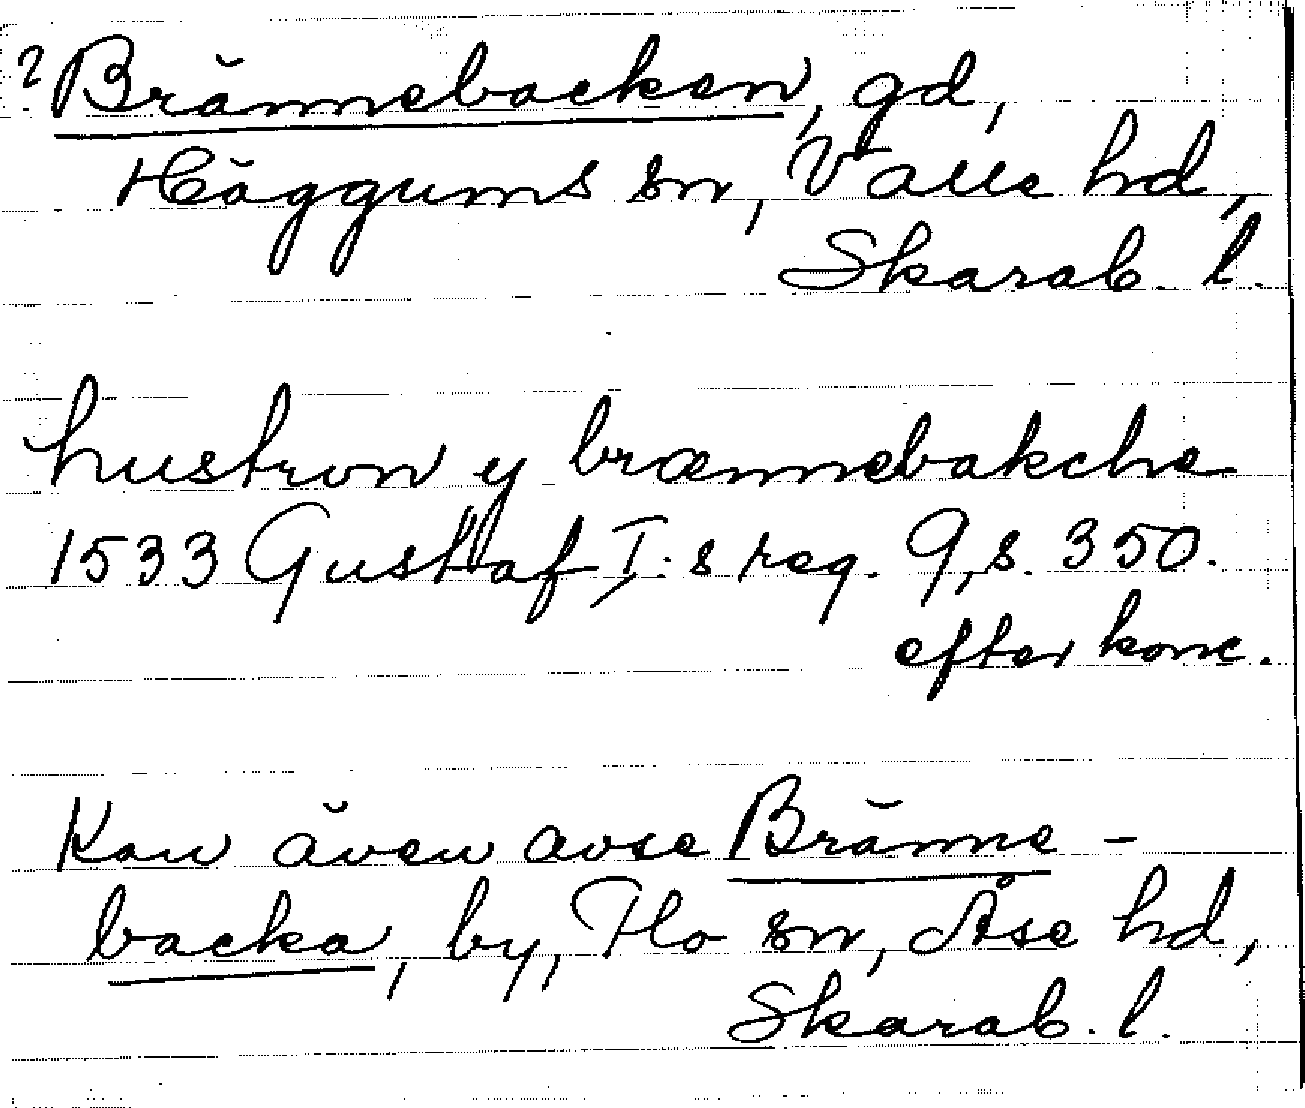 ? Brännebacken, gd,
Häggums sn, Valle hd,
Skarab. l.
hustron y brænnebakche
1533 Gustaf I:s reg. 9, s. 350.
efter konc.
Kan även avse Bränne-
backa, by, Flo sn, Åse hd,
Skarab. l.